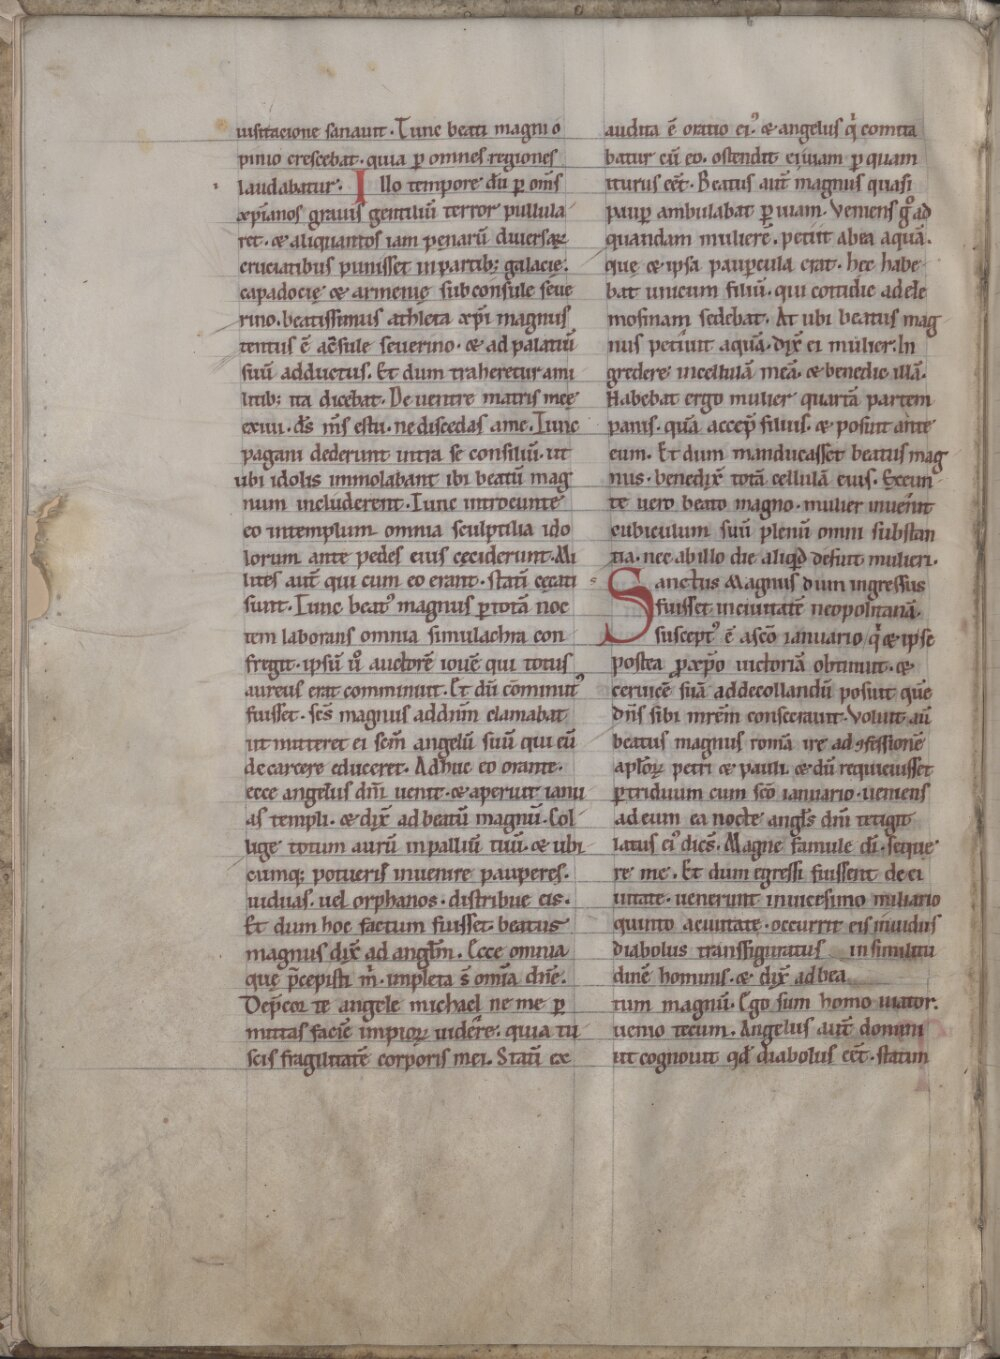 uisitacione sanauit. Tunc beati magni o
pinio crescebat. quia ꝑ omnes regiones
laudabatur. Illo tempore dū ꝑ om̄s
xp̄ianos grauis gentiliū terror pullula
ret. ⁊ aliquantos iam penarū diuersaꝝ
cruciatibus punisset in partibꝫ galacię.
capadocię ⁊ armenię sub consule seue
rino. beatissimus athleta xp̄i magnus
tentus ē a c̄sule seuerino. ⁊ ad palatiū
suū adductus. Et dum traheretur a mi
litibꝫ ita dicebat. De uentre matris meę
exiui. ds̄ ms̄ es tu. ne discedas a me. Tunc
pagani dederunt intra se consiliū. ut
ubi idolis immolabant ibi beatū mag
num includerent. Tunc introeunte
eo in templum omnia sculptilia ido
lorum ante pedes eius ceciderunt. Mi
lites aut̄ qui cum eo erant. statī cecati
sunt. Tunc beatꝰ magnus ꝑ totā noc
tem laborans omnia simulachra con
fregit. ipsū u͛o auctorē iouē qui totus
aureus erat comminuit. Et dū cōminutꝰ
fuisset. scs̄ magnus ad dn̄m clamabat
ut mitteret ei scm̄ angelū suū qui eū
de carcere educeret. Adhuc eo orante.
ecce angelus dn̄i uenit. ⁊ aperuit ianu
as templi. ⁊ dix̄ ad beatū magnū. Col
lige totum aurū in palliū tuū. ⁊ ubi
cumqꝫ potueris inuenire pauperes.
uiduas. uel orphanos. distribue eis.
Et dum hoc factum fuisset. beatus
magnus dix̄ ad angl̄m. Ecce omnia
que p̄cepisti m̍. impleta s̄ om̄ia dn̄e.
Dep̄cor te angele michael ne me ꝑ
mittas faciē impioꝝ uidēre. quia tu
scis fragilitatē corporis mei. Statī ex
audita ē oratio eiꝰ. ⁊ angelus qͥ comita
batur cū eo. ostendit ei uiam ꝑ quam
iturus eēt. Beatus aut̄ magnus quasi
paupꝑ ambulabat ꝑ uiam. Veniens gͦ ad
quandam mulierē. petiit ab ea aquā.
que ⁊ ipsa pauꝑcula erat. hec habe
bat unicum filiū. qui cottidie ad ele
mosinam sedebat. At ubi beatus mag
nus petiuit aquā. dix̄ ei mulier. In
gredere in cellulā meā. ⁊ benedic illā.
Habebat ergo mulier quartā partem
panis. quā accep̄ filius. ⁊ posuit ante
eum. Et dum manducasset beatus mag
nus. benedix̄ totā cellulā eius. Exeun
te uero beato magno. mulier inuenit
cubiculum suū plenū omni substan
tia. nec ab illo die aliqͥd defuit mulieri.
Sanctus Magnus dum ingressus
fuisset in ciuitatē neopolitanā.
susceptꝰ ē a scō ianuario qͥ ⁊ ipse
postea ꝓ xp̄o uictoriā obtinuit. ⁊
ceruicē suā ad decollandū posuit quē
dn̄s sibi mr̄em consecrauit. Voluit aū
beatus magnus romā ire ad ꝯfessionē
apl̄oꝝ petri ⁊ pauli. ⁊ dū requieuisset
ꝑ triduum cum scō ianuario. ueniens
ad eum ea nocte angl̄s dn̄i tetigit
latus eiꝰ dicēs. Magne famule dī. seque
re me. Et dum egressi fuissent de ci
uitate. uenerunt in uicesimo miliario
quinto a ciuitate. occurrit eis inuidus
diabolus transfiguratus in similitu
dinē hominis. ⁊ dix̄ ad bea
tum magnū. Ego sum homo uiator.
uenio tecum. Angelus aut̄ domini
ut cognouit qd̄ diabolus eēt. statim